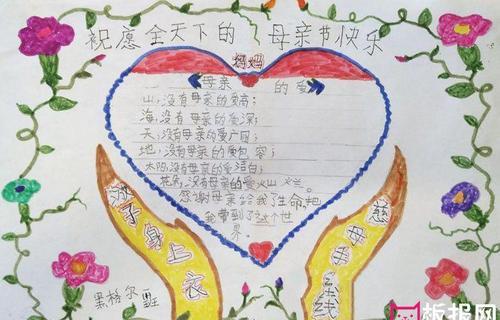 祝愿全天下的母亲节快乐
妈妈
母亲的爱
山,没有母亲的爱高;
海,没有母亲的爱深;
天,没有母亲的爱广阔;
地,没有母亲的爱包容;
太阳,没有母亲的爱洁白;
花朵,没有母亲的爱火山烂
感谢母亲给我了生命,把
我带到了这个世
界。
游子身上衣
慈母手中线
黑格尔 班
板报网